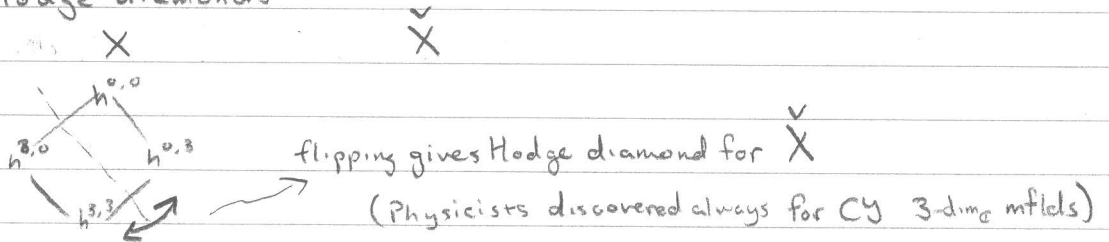 Hodge diamonds
X X̌
h^{0,0}
h^{3,0} h^{0,3} flipping gives Hodge diamond for X̌
h^{3,3} (Physicists discovered always for CY 3-dim_ℂ mflds)